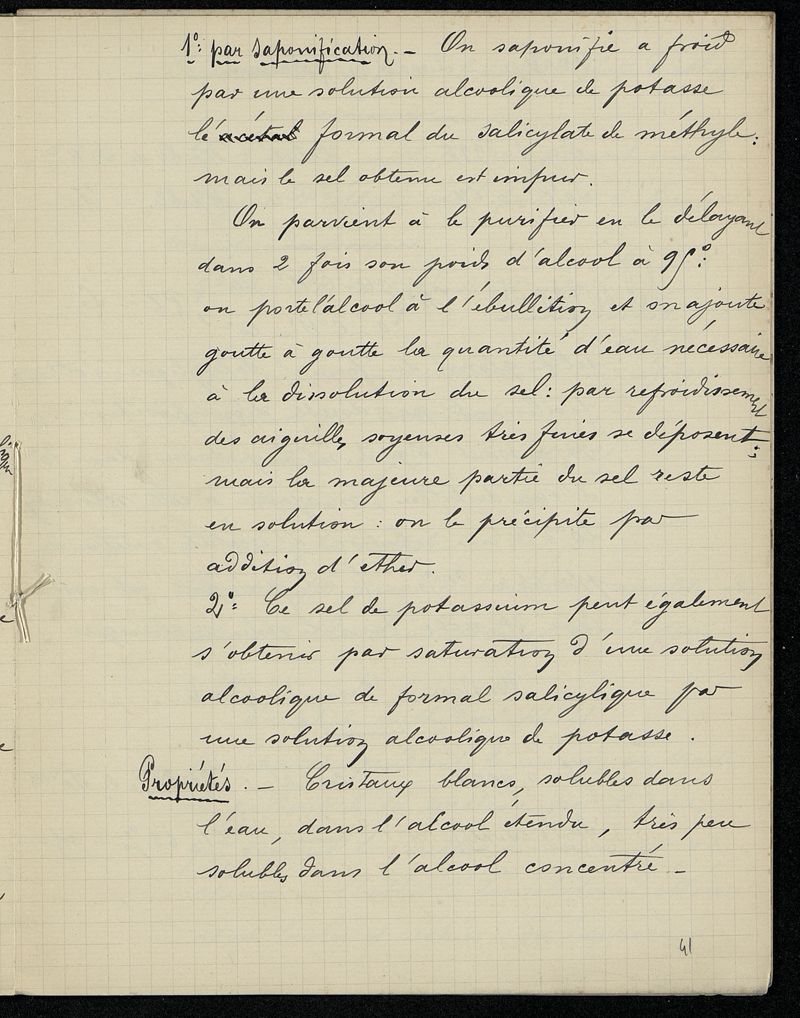 1º: par saponification. – On saponifie a froid
par une solution alcoolique de potasse
le formal du salicylate de méthyle:
mais le sel obtenu est impur.
On parvient à le purifier en le délayant
dans 2 fois son poids d'alcool à 95º:
on porte l'alcool à l'ébullition et on ajoute
goutte à goutte la quantité d'eau nécessaire
à la dissolution du sel: par refroidissement
des aiguilles soyeuses très fines se déposent:
mais la majeure partie du sel reste
en solution: on le précipite par
addition d'ether.
2º: Ce sel de potassium peut également
s'obtenir par saturation d'une solution
alcoolique de formal salicylique par
une solution alcoolique de potasse.
Propriétés. – Cristaux blancs, solubles dans
l'eau, dans l'alcool étendu, très peu
solubles dans l'alcool concentré –
41